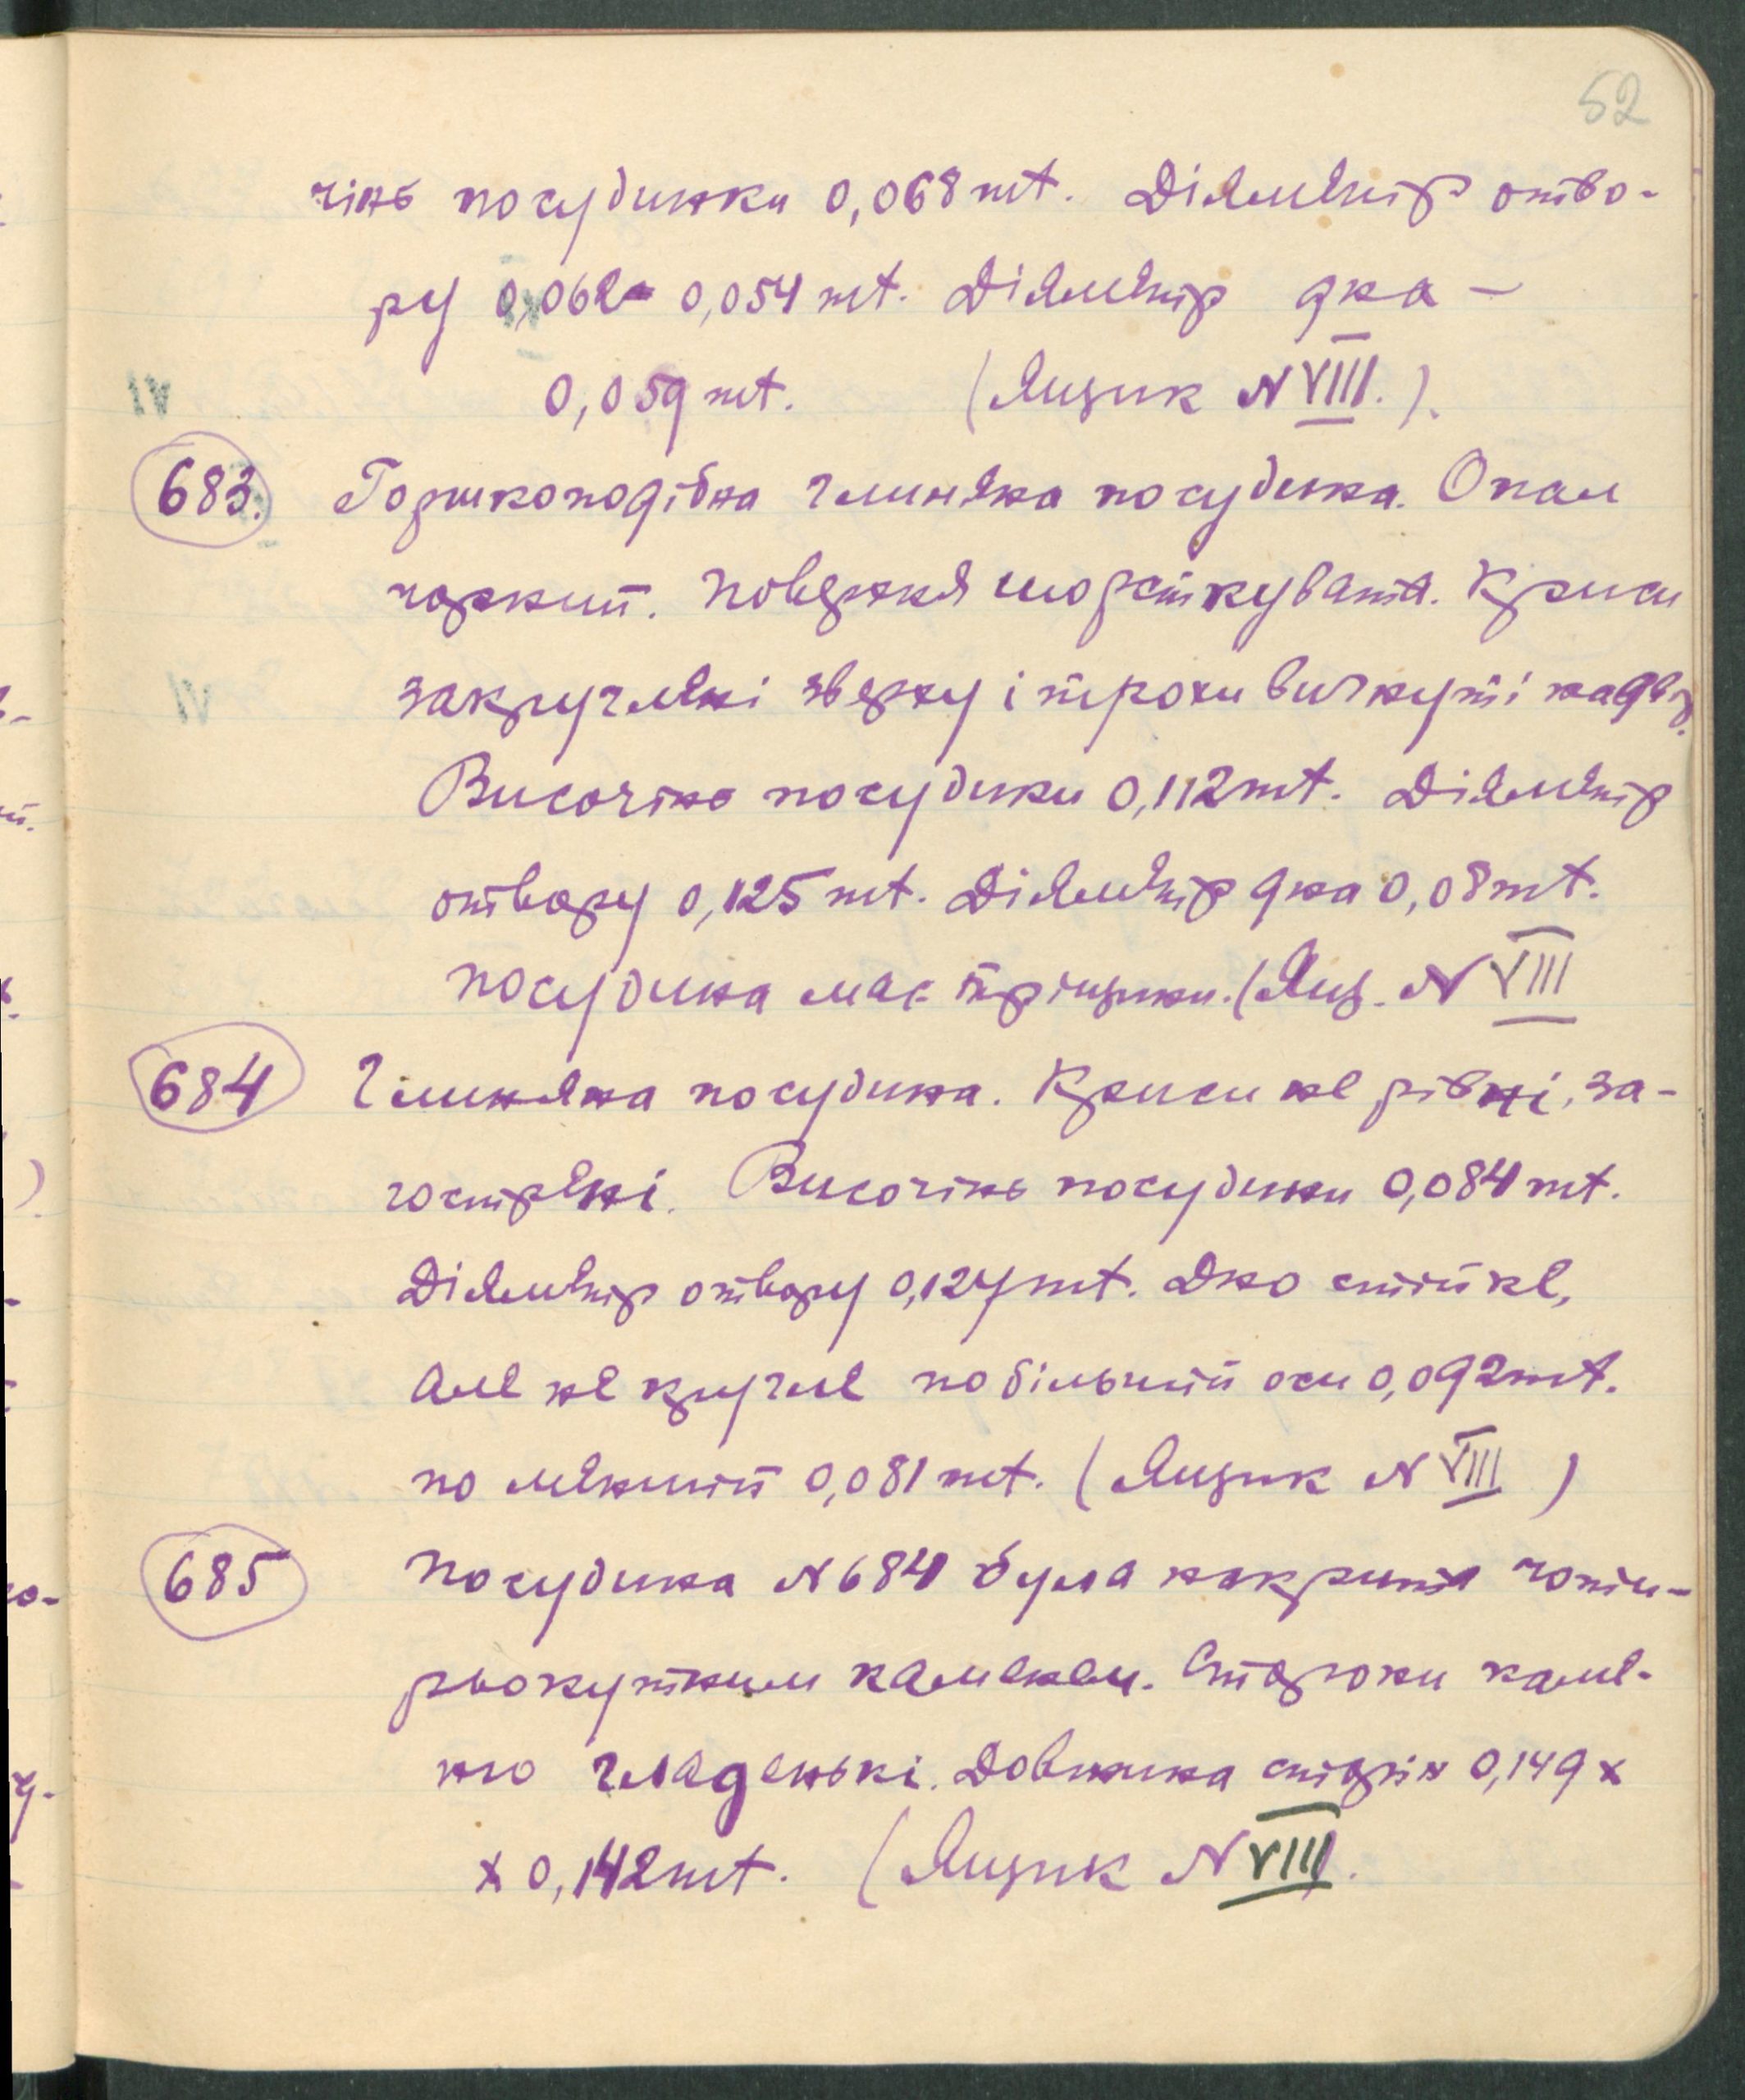 52
чінь посудинки 0,068 mt. Діяметр отво-
ру 0,062 - 0,054 mt. Діяметр дна -
0,059 mt. (Ящик N VIII.).
683. Горшкоподібна глиняна посудина. Опал
чорний. Поверхня шорсткувата. Криси
закруглені зверху і трохи вигнуті надвір.
Височінь посудини 0,112 mt. Діяметр
отвору 0,125 mt. Діяметр дна 0,08 mt.
Посудина має тріщини. (Ящ. N VIII
684 Глиняна посудина. Криси не рівні, за-
гострені. Височінь посудини 0,084 mt.
Діяметр отвору 0,127 mt. Дно стійке,
але не кругле по більшій оси 0,092 mt.
по меншій 0,081 mt. (Ящик N VIII)
685 Посудина N 684 була накрита чоти-
рьокутним каменем. Сторони каме-
ню гладенькі. Довжина сторін 0,149 x
x 0,142 mt. (Ящик N VIII).